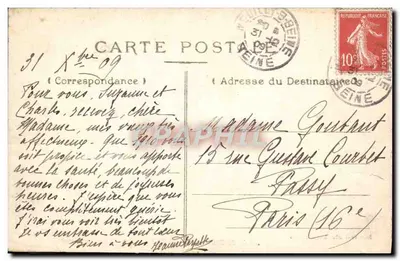 CARTE POSTALE
(Correspondance)
Adresse du Destinataire
31 Xbre 09
Pour vous, Suzanne et
Charles, recevez, chère
Madame, mes
affectueux. Que
soit et vous apporte
avec la santé, beaucoup de
bonnes choses et de joyeuses
heures. J'espère que vous
êtes complètement guérie.
J'irai vous voir très bientôt
Je vous embrasse de tout cœur
Bien à vous Jeanne
Madame Goubaut
15 rue Gustave Courbet
Passy
Paris (16e)
REPUBLIQUE FRANÇAISE
10c
POSTES
SEINE
31
09
SEINE